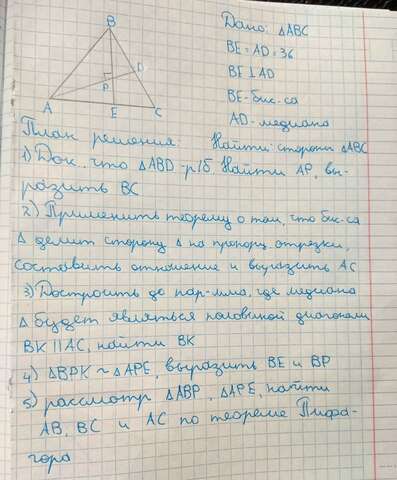 B
Дано: △ABC
BE = AD = 36
BE ⊥ AD
BE - бис-са
AD - медиана
D
P
A
E
C
План решения:
Найти: стороны △ABC
1) Док. что △ABD - р/б. Найти AP, вы-
разить BC
2) Применить теорему о том, что бис-са
△ делит сторону △ на пропорц. отрезки,
составить отношение и выразить AC
3) Достроить до пар-мма, где медиана
△ будет являться половиной диагонали
BK || AC, найти BK
4) △BPK ~ △APE, выразить BE и BP
5) рассмотр. △ABP, △APE, найти
AB, BC и AC по теореме Пифа-
гора